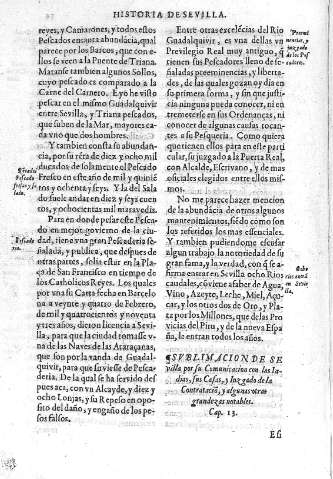 HISTORIA DE SEVILLA.
reyes, y Camarones, y todos estos
Pescados en su abundãcia, qual
parece por los Barcos, que con e-
llos se veen a la Puente de Triana.
Matanse tambien algunos Sollos,
cuyo pescado es comparado a la
Carne del Carnero. E yo he visto
pescar en el mismo Guadalquivir
entre Sevilla, y Triana pescados,
que suben de la Mar, mayores ca-
da vno que dos hombres.
Y tambien consta su abundan-
cia, por su rẽta de diez y ocho mil
ducados de solamente el Pescado
Fresco en este año de mil y quiniẽ-
tos y ochenta y seys. Y la del Sala
do suele andar en diez y seys cuen
tos, y ochocientas mil maravedis.
Renta del
Pescado
fresco y sa-
lado.
Para en donde pesar este Pesca
do en mejor govierno de la ciu-
dad, tiene vna gran Pescaderia se-
ñalada, y publica, que despues de
otras partes, solia estar en la Pla-
ça de San Francisco en tiempo de
los Catholicos Reyes. Los quales
por vna su Carta fecha en Barcelo
na a veynte y quatro de Febrero,
de mil y quatrocientos y noventa
y tres años, dieron licencia a Sevi-
lla, para que la ciudad tomasse v-
na de las Naves de las Ataraçanas,
que son por la vanda de Guadal-
quivir, para que su viesse de Pesca-
deria. De la qual se ha servido des
pues aca, con vn Alcayde, y diez y
ocho Lonjas, y su Repeso en opo-
sito del daño, y engaño de los pe-
sos falsos.
Pescade-
ria.
Entre otras excelẽcias del Rio
Guadalquivir, es vna dellas vn
Previlegio Real muy antiguo, q̃
tienen sus Pescadores lleno de se-
ñaladas preeminencias, y liberta-
des, de las quales gozan oy dia en
su primera forma, y sin que justi-
cia ninguna pueda conocer, ni en
tremeterse en sus Ordenanças, ni
conocer de algunas causas tocan-
tes a su Pesqueria. Como quiera
que tienen ellos para en este parti
cular, su juzgado a la Puerta Real,
con Alcalde, Escrivano, y de mas
oficiales elegidos entre ellos mis-
mos.
Preemi
nencias, y
juzgado
de los Pes
cadores.
No me parece hazer mencion
de la abundãcia de otros algunos
mantenimientos, no sẽdo como son
los referidos los mas essenciales.
Y tambien pudiendome escusar
algun trabajo la notoriedad de su
gran fama, y la verdad, con q̃ se a-
firma entrar en Sevilla ocho Rios
caudales, cõviene a saber de Agua,
Vino, Azeyte, Leche, Miel, Açu-
car, y los otros dos de Oro, y Pla-
ta por los Millones, que de las Pro
vincias del Piru, y de la nueva Espa
ña, le entran todos los años.
Ocho
rios entrã
en Sevi-
lla.
¶SVBLIMACION DE SE
villa por su Comunicacion con las In-
dias, sus Casas, y Juzgado de la
Contratacion, y algunas otras
grandezas notables.
Cap. 13.
Es